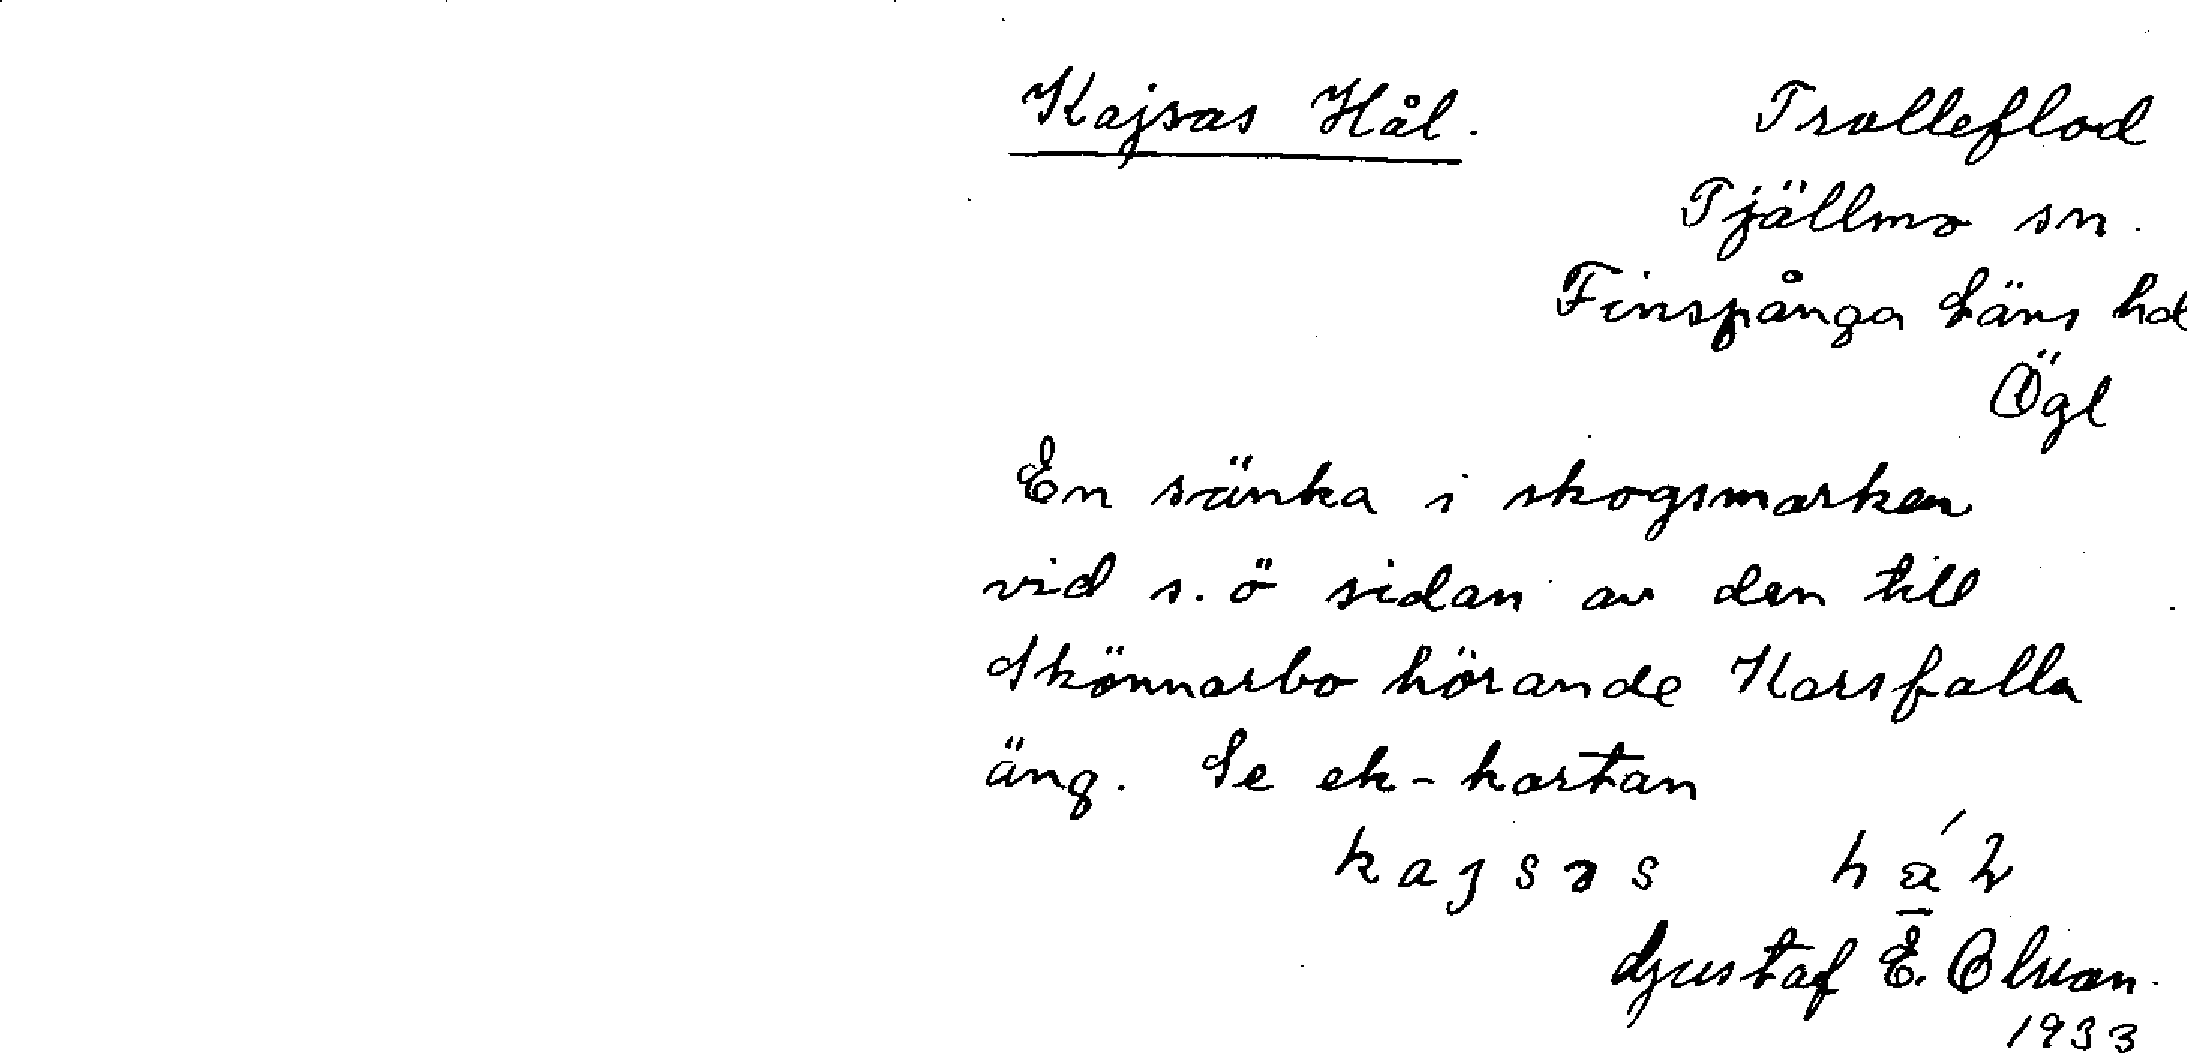 Kajsas Hål. Trolleflod
Tjällmo sn.
Finspånga läns hd
Ögl
En sänka i skogsmarken
vid s. ö sidan av den till
Skönnarbo hörande Korsfalla
äng. Se ek-kartan
kajsɘs
Gustaf E.
1933